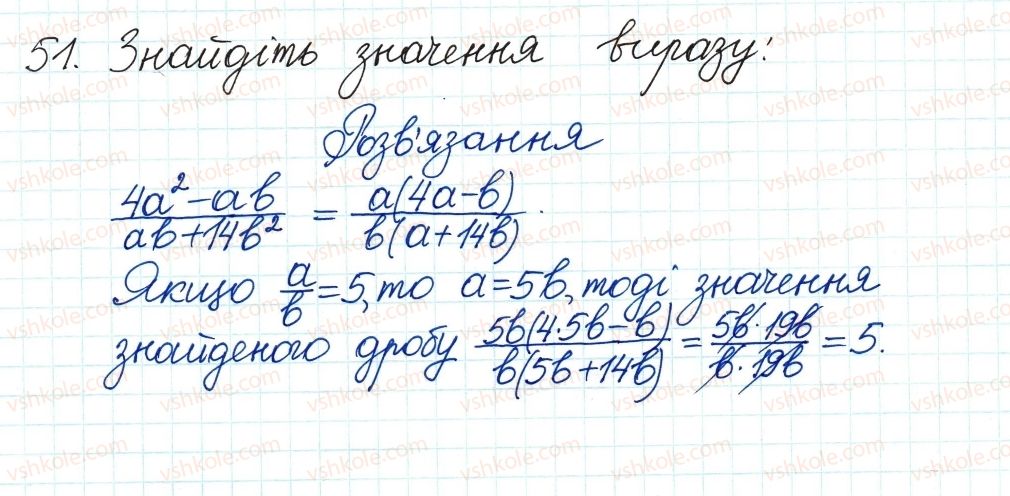 51. Знайдіть значення виразу:
Розв'язання
(4a² - ab)/(ab + 14b²) = (a(4a - b))/(b(a + 14b)).
Якщо a/b = 5, то a = 5b, тоді значення
знайденого дробу (5b(4·5b - b))/(b(5b + 14b)) = (5b·19b)/(b·19b) = 5.